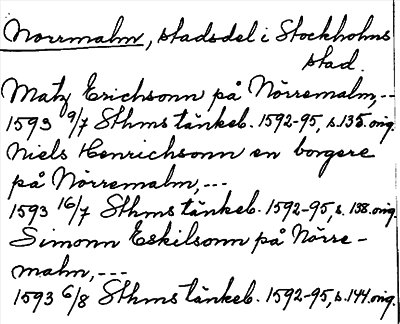 Norrmalm, stadsdel i Stockholms
stad.
Matz Erichsonn på Nörremalm,--
1593 9/7 Sthms tänkeb. 1592-95, s. 135. orig.
Niels Henrichsonn en borgere
på Nörremalm,---
1593 16/7 Sthms tänkeb. 1592-95, s. 138. orig.
Simonn Eskilsonn på Nörre-
malm,---
1593 6/8 Sthms tänkeb. 1592-95, s. 144. orig.